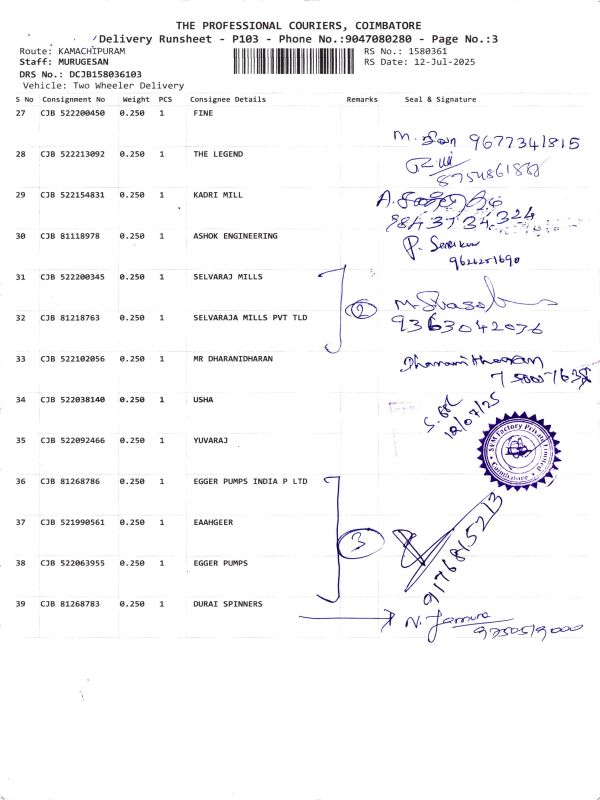 THE PROFESSIONAL COURIERS, COIMBATORE
Delivery Runsheet - P103 - Phone No.:9047080280 - Page No.:3
Route: KAMACHIPURAM RS No.: 1580361
Staff: MURUGESAN RS Date: 12-Jul-2025
DRS No.: DCJB158036103
Vehicle: Two Wheeler Delivery
S No Consignment No Weight PCS Consignee Details Remarks Seal & Signature
27 CJB 522200450 0.250 1 FINE
M. 9677341815
28 CJB 522213092 0.250 1 THE LEGEND
29 CJB 522154831 0.250 1 KADRI MILL
A.
9843734324
30 CJB 81118978 0.250 1 ASHOK ENGINEERING
P.
9626251690
31 CJB 522200345 0.250 1 SELVARAJ MILLS
2
32 CJB 81218763 0.250 1 SELVARAJA MILLS PVT TLD
9363042076
33 CJB 522102056 0.250 1 MR DHARANIDHARAN
Dharanitharan
34 CJB 522038140 0.250 1 USHA
12/07/25
35 CJB 522092466 0.250 1 YUVARAJ
SVM Factory Private
Coimbatore
36 CJB 81268786 0.250 1 EGGER PUMPS INDIA P LTD
37 CJB 521990561 0.250 1 EAAHGEER
3
9176815213
38 CJB 522063955 0.250 1 EGGER PUMPS
39 CJB 81268783 0.250 1 DURAI SPINNERS
N.